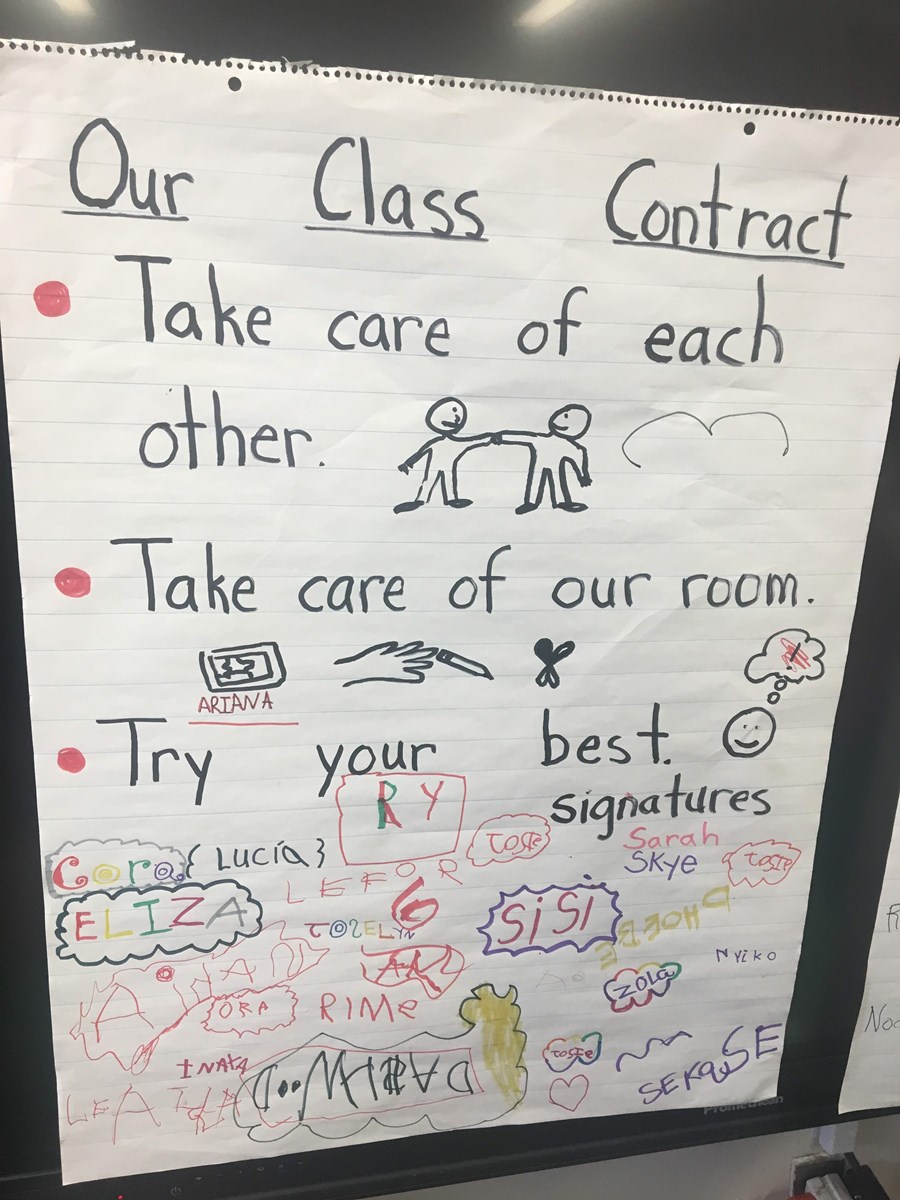 Our Class Contract
Take care of each
other.
Take care of our room.
ARIANA
Try your best.
signatures
RY
Cora
{LUCÍA}
TOSIE
Sarah
Skye
TOSIE
LEFOR
ELIZA
JOZELYN
SiSi
PHOEBE
Nyiko
ZOLA
ORA
RIMe
INAYA
TOSIE
SEKOUSE
LEATA
Promethean